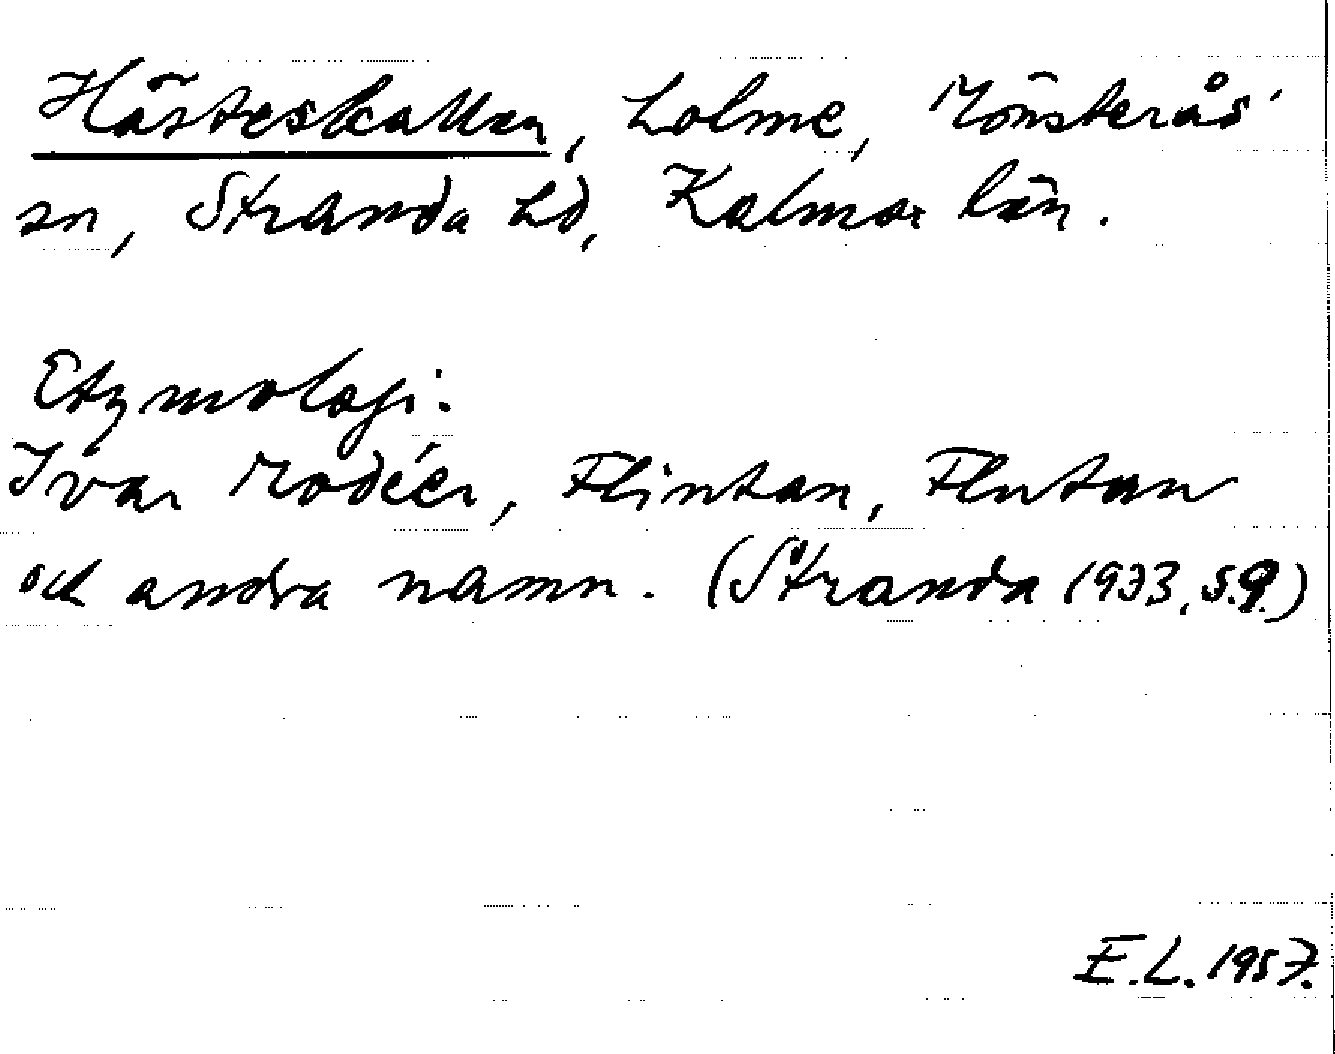 Hästeskallen, holme, Mönsterås
sn, Stranda hd, Kalmar län.
Etymologi:
Ivar Modéer, Flintan, Flutan
och andra namn. (Stranda 1933, s.9.)
E.L. 1957.